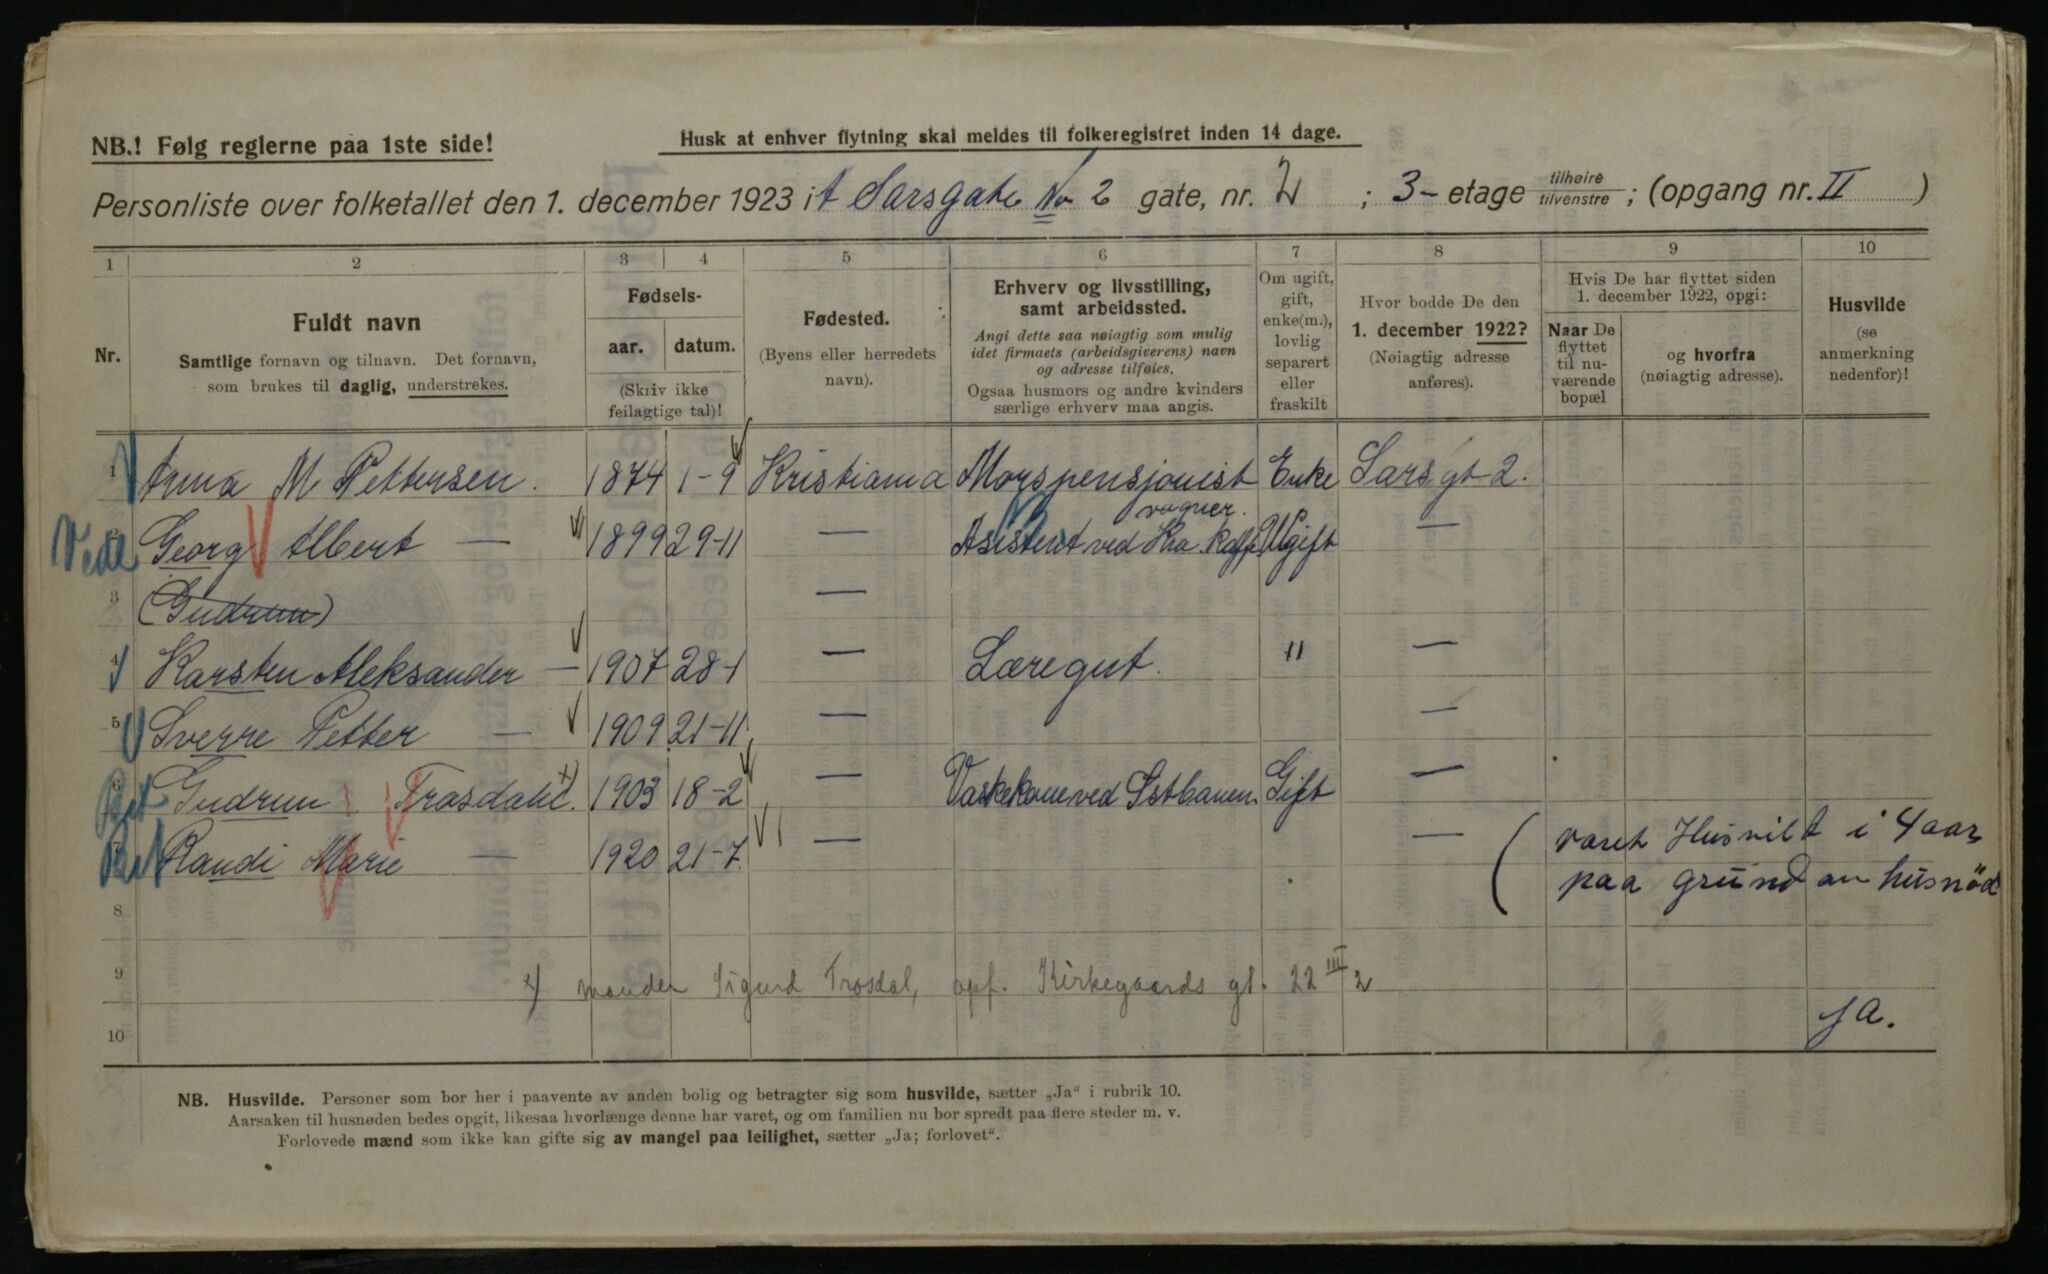 NB.! Følg reglerne paa 1ste side!
Husk at enhver flytning skal meldes til folkeregistret inden 14 dage.
Personliste over folketallet den 1. december 1923 i Sarsgate No 2 gate, nr. 2 ; 3 - etage tilhøire tilvenstre ; (opgang nr. II )
1 2 3 4 5 6 7 8 9 10
Nr.
Fuldt navn
Samtlige fornavn og tilnavn. Det fornavn,
som brukes til daglig, understrekes.
Fødsels-
aar. datum.
(Skriv ikke
feilagtige tal)!
Fødested.
(Byens eller herredets
navn).
Erhverv og livsstilling,
samt arbeidssted.
Angi dette saa nøiagtig som mulig
idet firmaets (arbeidsgiverens) navn
og adresse tilføies.
Ogsaa husmors og andre kvinders
særlige erhverv maa angis.
Om ugift,
gift,
enke(m.),
lovlig
separert
eller
fraskilt
Hvor bodde De den
1. december 1922?
(Nøiagtig adresse
anføres).
Hvis De har flyttet siden
1. december 1922, opgi:
Naar De
flyttet
til nu-
værende
bopæl
og hvorfra
(nøiagtig adresse).
Husvilde
(se
anmerkning
nedenfor)!
1 Anna M Pettersen. 1874 1-9 Kristiania Morspensjonist Enke Sars gt 2.
vogner.
2 Georg Albert — 1899 29-11 — Asistent ved Kra. Kaffe Ugift —
3 (Gudrun) —
4 Karsten Aleksander — 1907 28-1 — Læregut. " —
5 Sverre Petter — 1909 21-11 — —
6 Gudrun Trosdahl. x) 1903 18-2 — Vaskekone ved Østbanen Gift —
7 Randi Marie — 1920 21-7 — — (været Husvilt i 4 aar
paa grund av husnöd
8
9 x) manden Sigurd Trosdal, opf. Kirkegaards gt. 22 III 2
10 ja.
NB. Husvilde. Personer som bor her i paavente av anden bolig og betragter sig som husvilde, sætter „Ja" i rubrik 10.
Aarsaken til husnøden bedes opgit, likesaa hvorlænge denne har varet, og om familien nu bor spredt paa flere steder m. v.
Forlovede mænd som ikke kan gifte sig av mangel paa leilighet, sætter „Ja; forlovet".